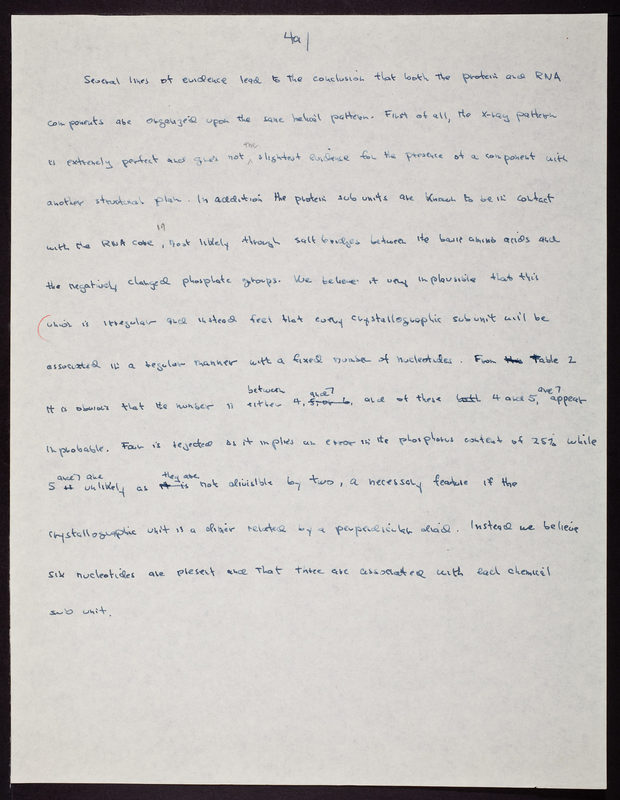 4a
Several lines of evidence lead to the conclusion that both the protein and RNA
components are organized upon the same helical pattern. First of all, the X-ray pattern
is extremely perfect and gives not the slightest evidence for the presence of a component with
another structural plan. In addition the protein sub units are known to be in contact
with the RNA core 19, most likely through salt bridges between the basic amino acids and
the negatively charged phosphate groups. We believe it very implausible that this
union is irregular and instead feel that every crystallographic sub unit will be
associated in a regular manner with a fixed number of nucleotides. From the Table 2
between and 7 are 7
it is obvious that the number is either 4, 5, or 6, and of these both 4 and 5, appear
improbable. Four is rejected as it implies an error in the phosphorus content of 25% while
and 7 are they are
5 it unlikely as it is not divisible by two, a necessary feature if the
crystallographic unit is a dimer related by a perpendicular diad. Instead we believe
six nucleotides are present and that three are associated with each chemical
sub unit.